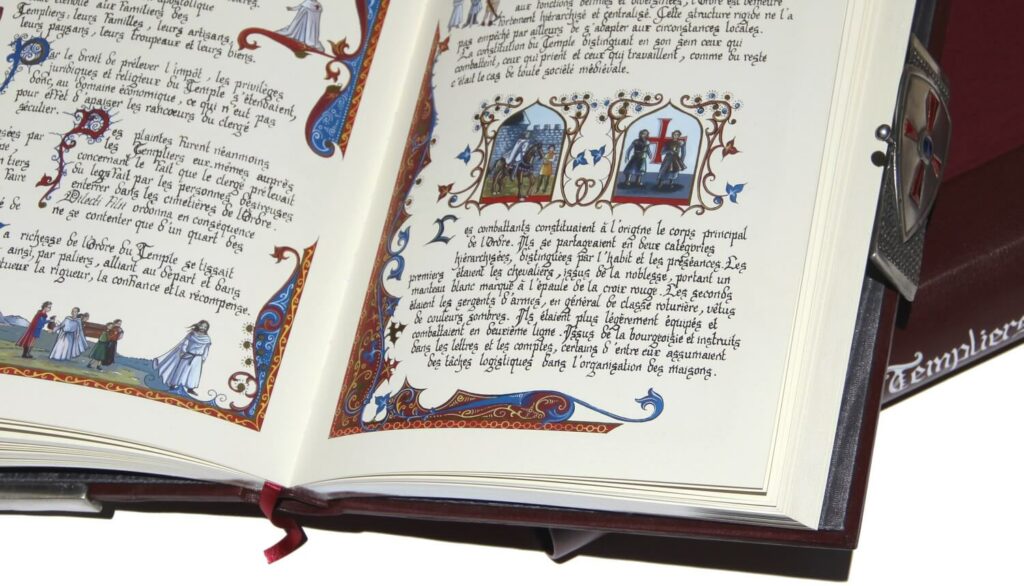 apostolique
étendait aux Familiers des
Templiers; leurs Familles, leurs artisans,
leurs paysans, leurs troupeaux et leurs biens.
Par le droit de prélever l'impôt, les privilèges
juridiques et religieux du Temple s'étendaient,
donc, au domaine économique, ce qui n'eut pas
pour effet d'apaiser les rancoeurs du clergé
séculier.
Des plaintes furent néanmoins
les Templiers eux-mêmes auprès
concernant le fait que le clergé prélevait
du legs fait par les personnes désireuses
enterrer dans les cimetières de l'Ordre.
Dilecti Filii ordonna en conséquence
ne se contenter que d'un quart des
sées par
tiers
faire
é de
a richesse de l'Ordre du Temple se tissait
ainsi, par paliers, alliant au départ et dans
tueux la rigueur, la confiance et la récompense.
aux fonctions définies et diversifiées, l'Ordre est demeuré
fortement hiérarchisé et centralisé. Cette structure rigide ne l'a
pas empêché par ailleurs de s'adapter aux circonstances locales.
La constitution du Temple distinguait en son sein ceux qui
combattent, ceux qui prient et ceux qui travaillent, comme du reste
c'était le cas de toute société médiévale.
Les combattants constituaient à l'origine le corps principal
de l'Ordre. Ils se partageaient en deux catégories
hiérarchisées, distinguées par l'habit et les préséances. Les
premiers étaient les chevaliers, issus de la noblesse, portant un
manteau blanc marqué à l'épaule de la croix rouge. Les seconds
étaient les sergents d'armes, en général de classe roturière, vêtus
de couleurs sombres. Ils étaient plus légèrement équipés et
combattaient en deuxième ligne. Issus de la bourgeoisie et instruits
dans les lettres et les comptes, certains d'entre eux assumaient
des tâches logistiques dans l'organisation des maisons.
Templiers